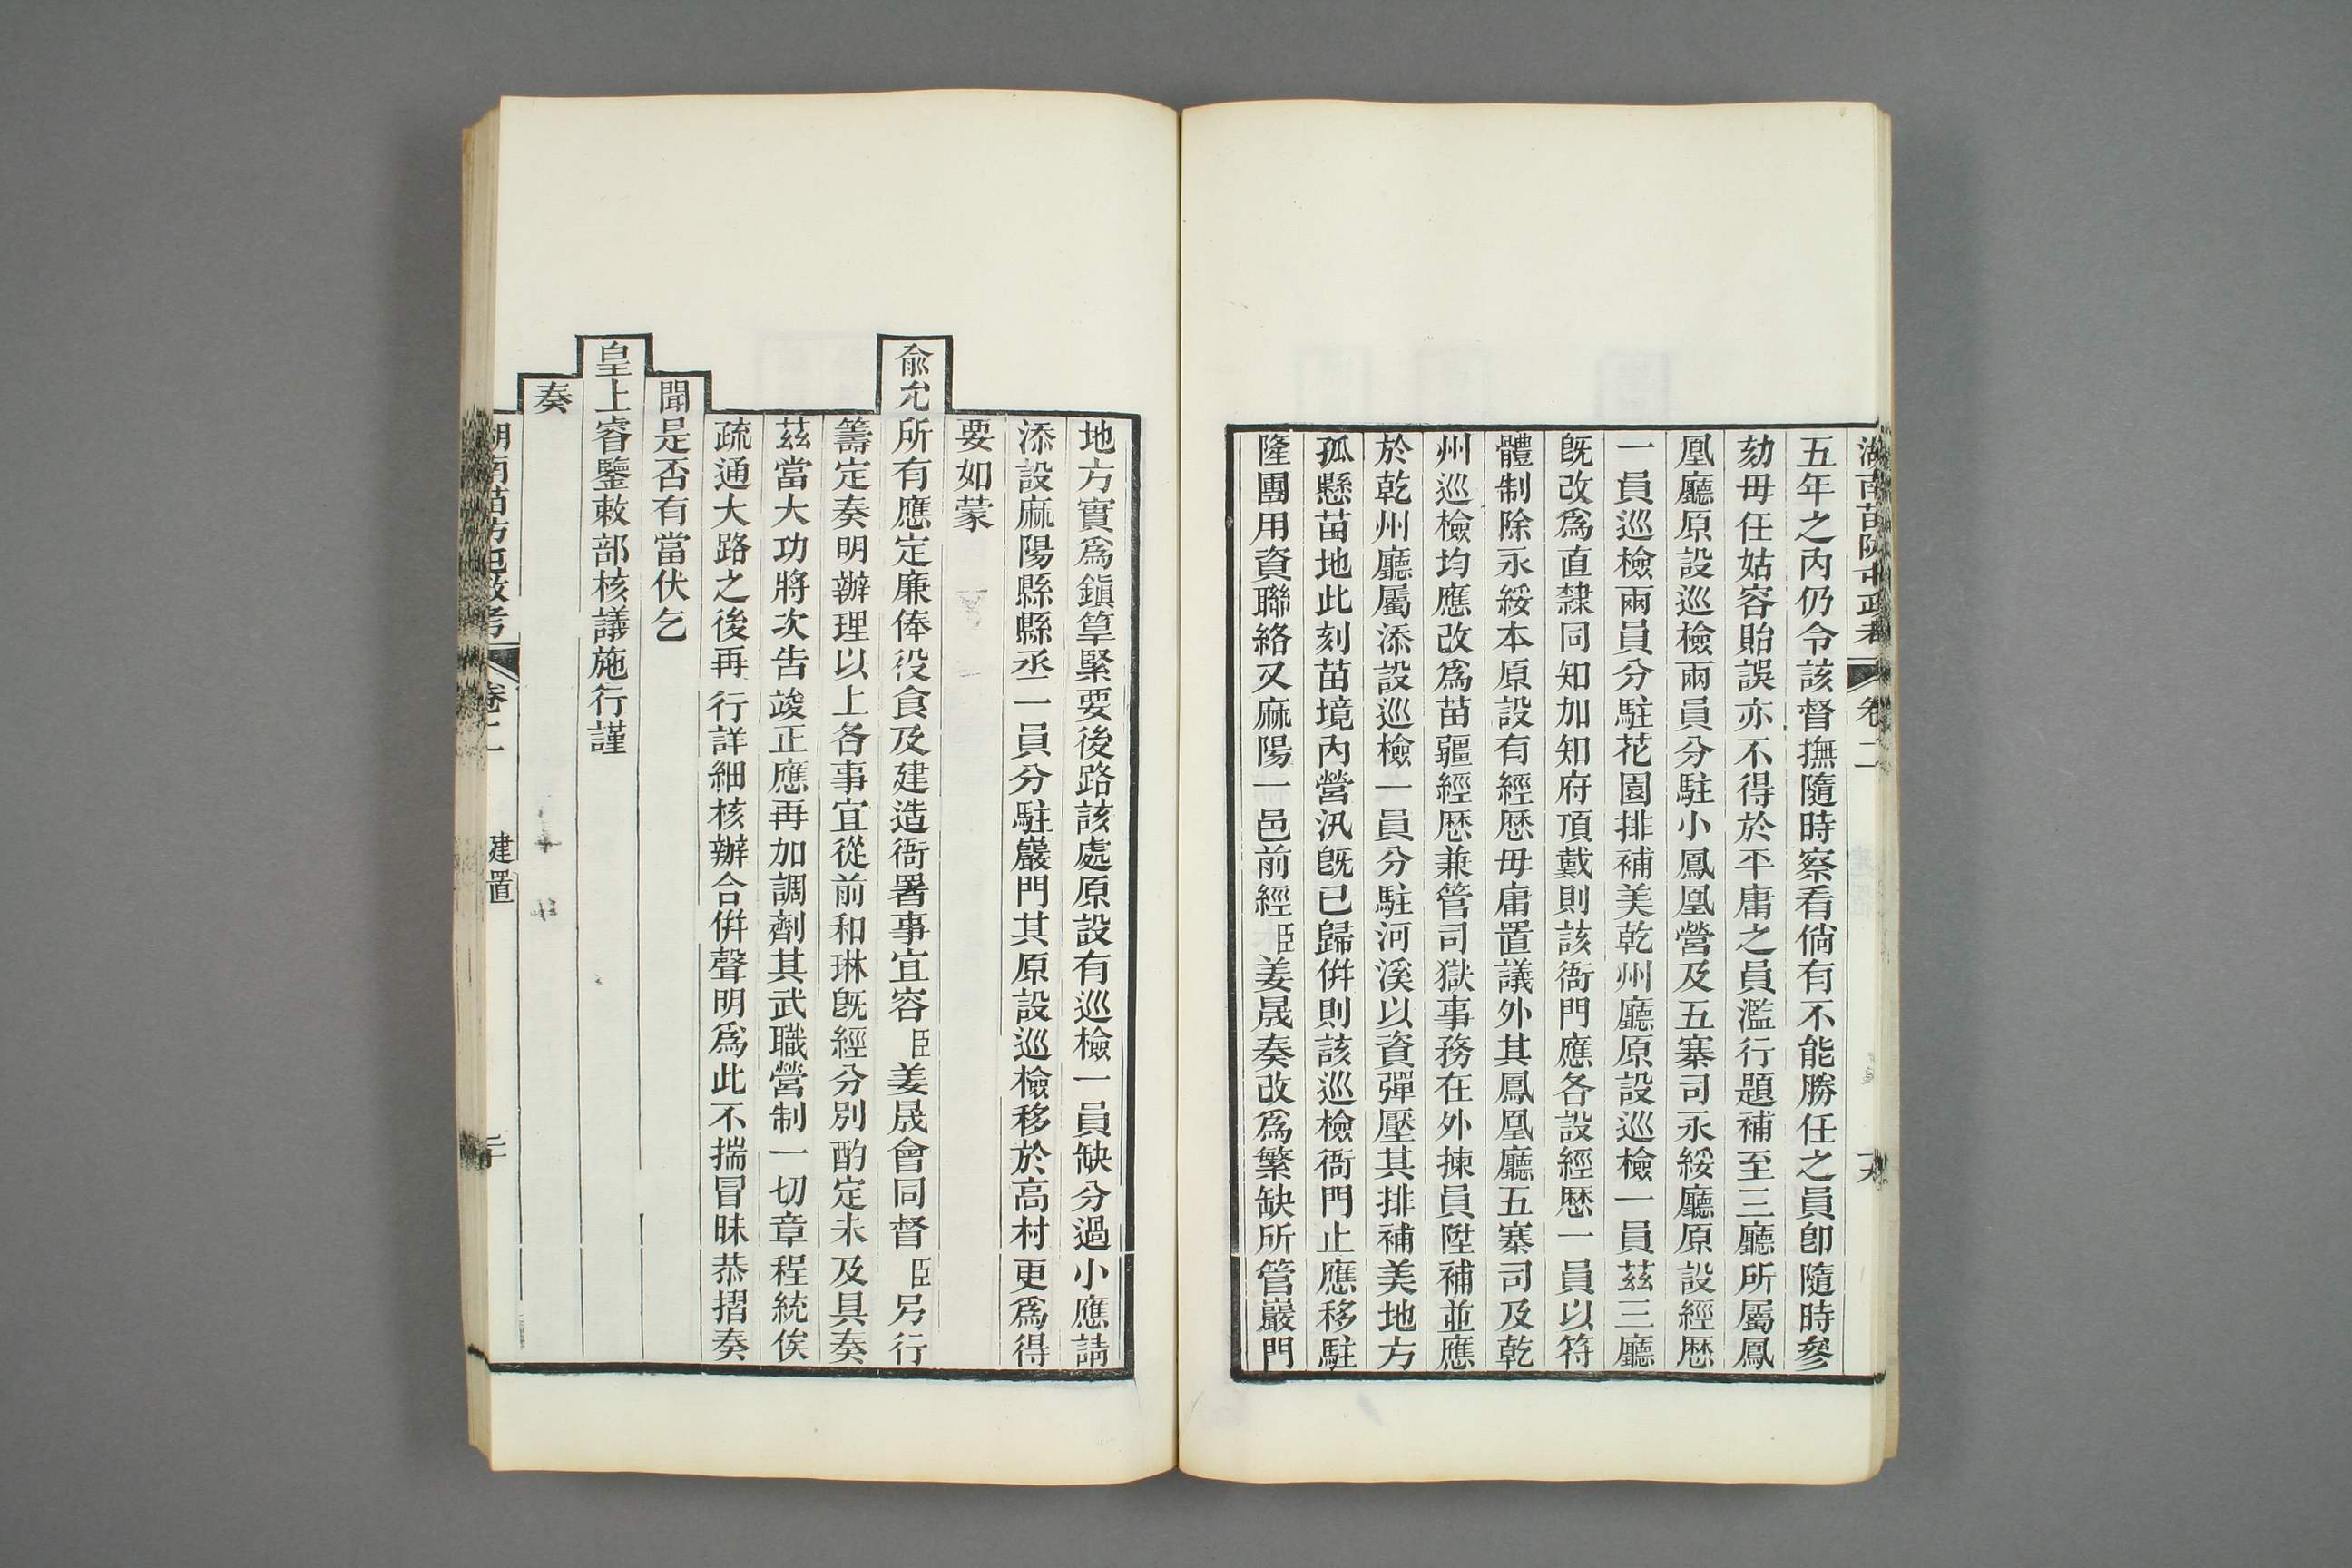 湖南苗防屯政考 卷二
五年之內仍令該督撫隨時察看倘有不能勝任之員卽隨時參
劾毋任姑容貽誤亦不得於平庸之員濫行題補至三廳所屬鳳
凰廳原設巡檢兩員分駐小鳳凰營及五寨司永綏廳原設經歷
一員巡檢兩員分駐花園排補美乾州廳原設巡檢一員茲三廳
旣改爲直隸同知加知府頂戴則該衙門應各設經歷一員以符
體制除永綏本原設有經歷毋庸置議外其鳳凰廳五寨司及乾
州巡檢均應改爲苗疆經歷兼管司獄事務在外揀員陞補並應
於乾州廳屬添設巡檢一員分駐河溪以資彈壓其排補美地方
孤懸苗地此刻苗境內營汛旣已歸併則該巡檢衙門止應移駐
隆團用資聯絡又麻陽一邑前經臣姜晟奏改爲繁缺所管巖門
地方實爲鎭筸緊要後路該處原設有巡檢一員缺分過小應請
添設麻陽縣縣丞一員分駐巖門其原設巡檢移於高村更爲得
要如蒙
俞允所有應定廉俸役食及建造衙署事宜容臣姜晟會同督臣另行
籌定奏明辦理以上各事宜從前和琳旣經分別酌定未及具奏
茲當大功將次吿竣正應再加調劑其武職營制一切章程統俟
疏通大路之後再行詳細核辦合併聲明爲此不揣冒昧恭摺奏
聞是否有當伏乞
皇上睿鑒敕部核議施行謹
奏
湖南苗防屯政考 卷二 建置 二十